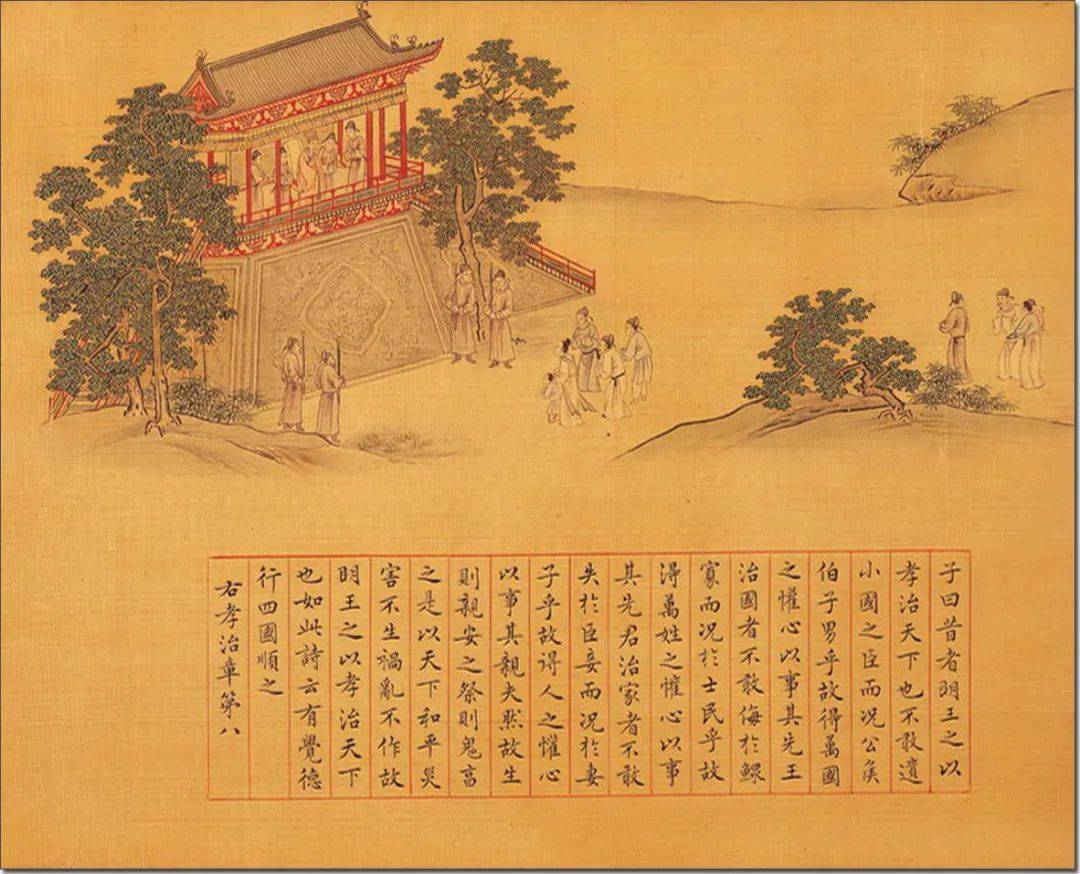 子曰昔者明王之以
孝治天下也不敢遺
小國之臣而况公侯
伯子男乎故得萬國
之懽心以事其先王
治國者不敢侮於鰥
寡而况於士民乎故
得萬姓之懽心以事
其先君治家者不敢
失於臣妾而况於妻
子乎故得人之懽心
以事其親夫然故生
則親安之祭則鬼亯
之是以天下和平災
害不生禍亂不作故
明王之以孝治天下
也如此詩云有覺德
行四國順之
右孝治章第八